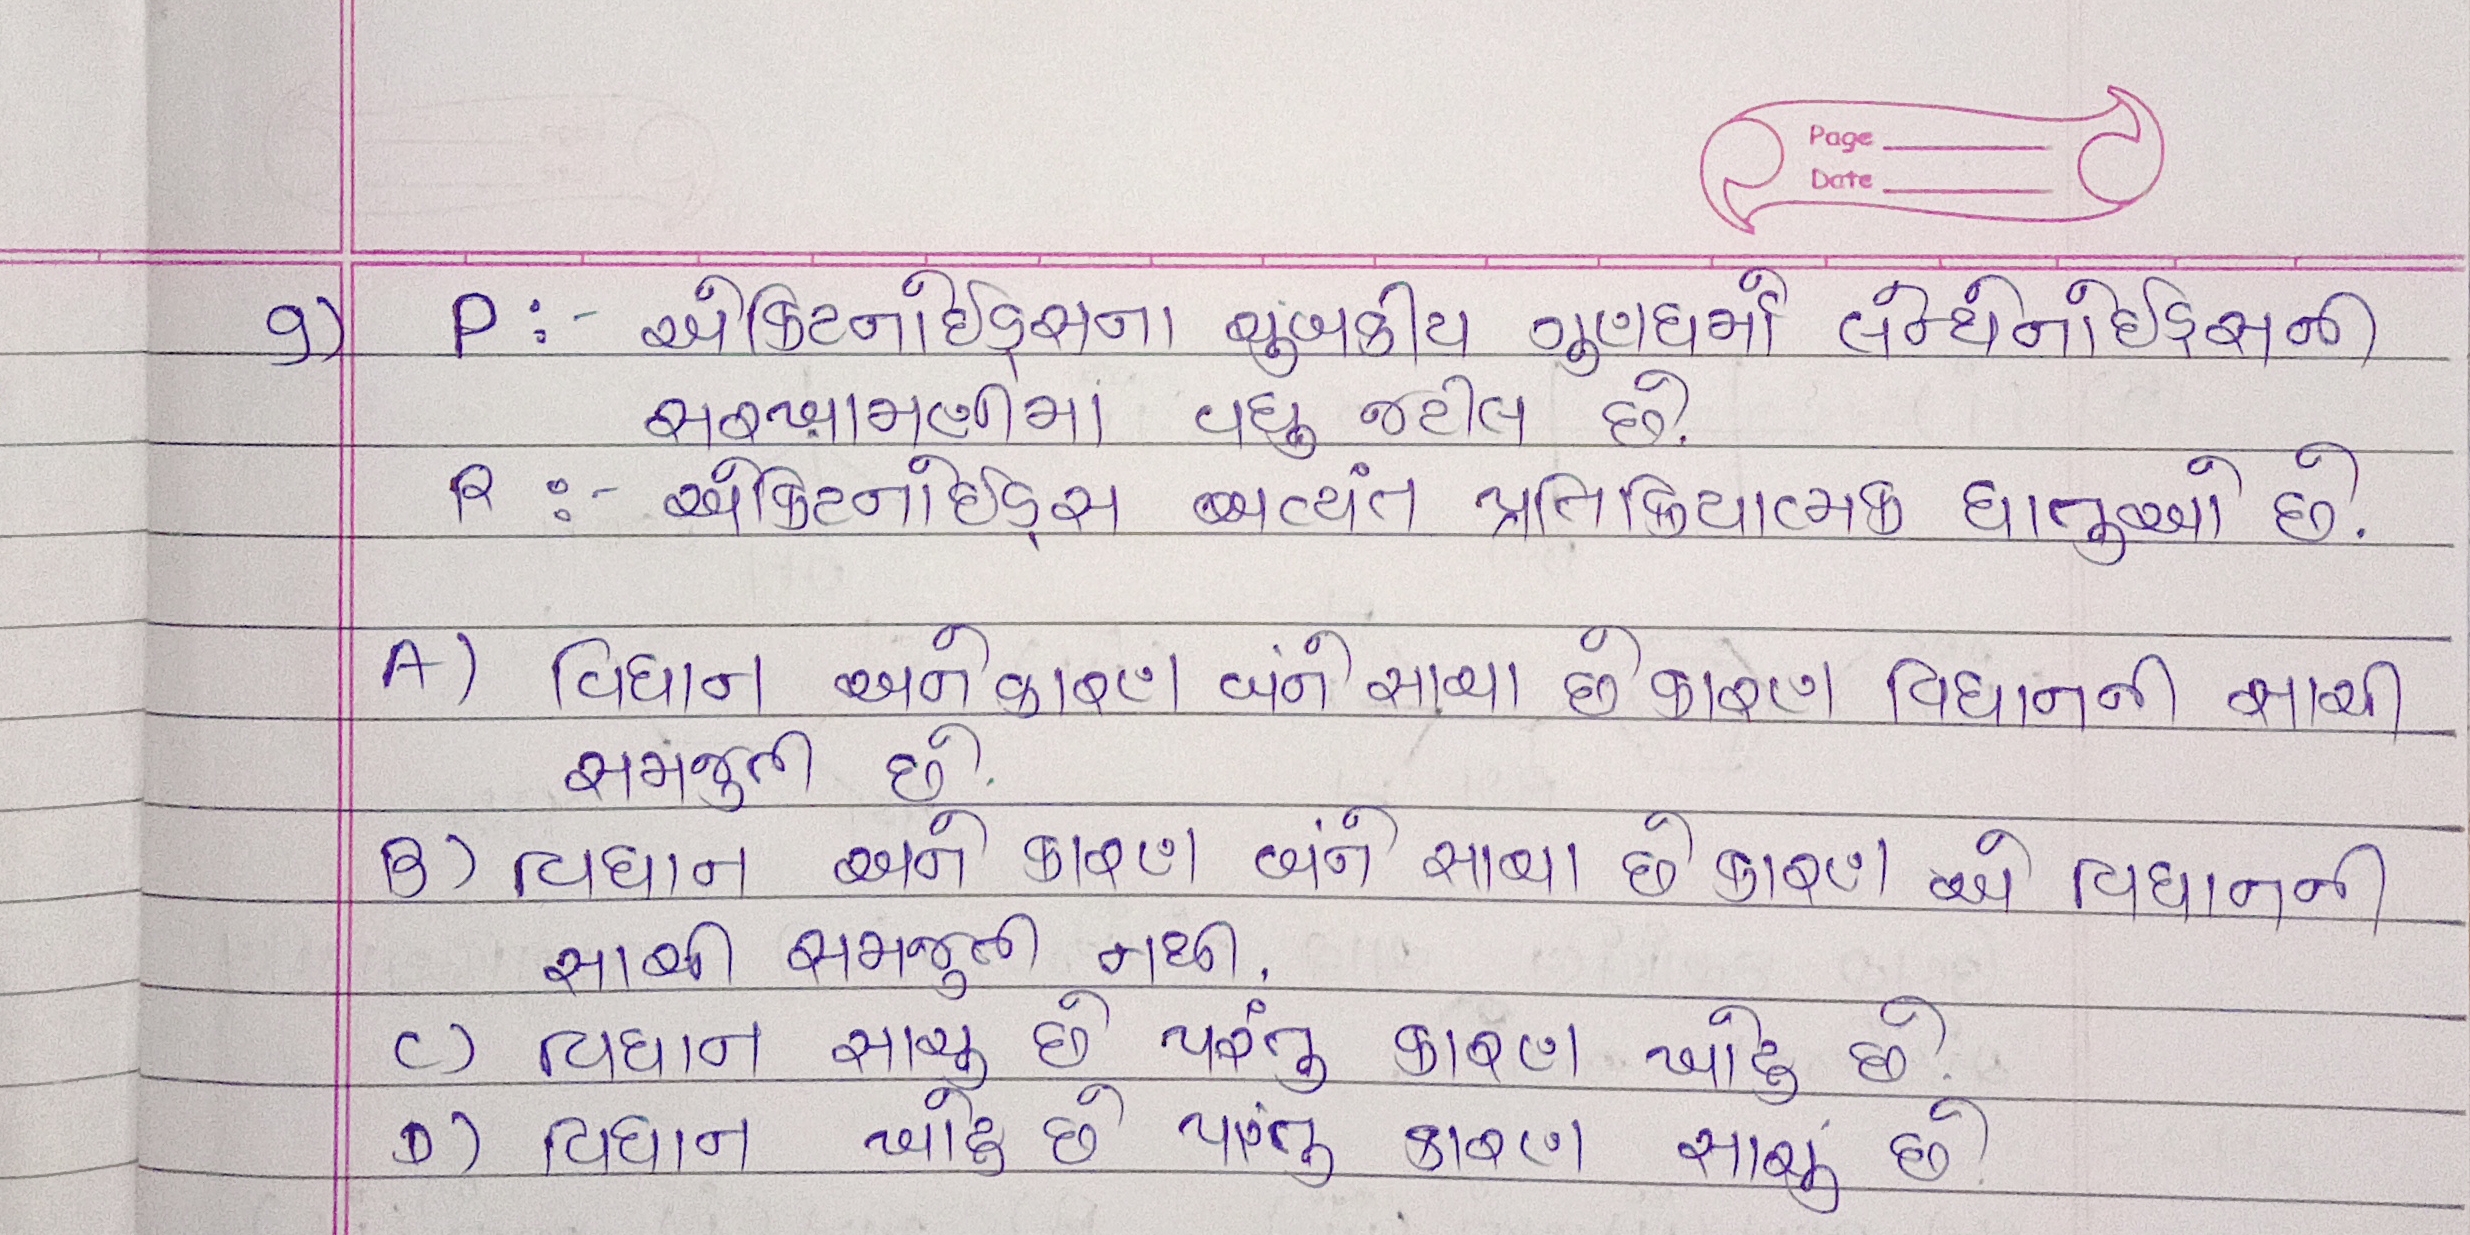 Page
Date
9) P :- ઍક્ટિનૉઈડ્સના ચુંબકીય ગુણધર્મો લેન્થેનોઈડ્સની
સરખામણીમાં વધુ જટીલ છે.
R :- ઍક્ટિનૉઈડ્સ અત્યંત પ્રતિક્રિયાત્મક ધાતુઓ છે.
A) વિધાન અને કારણ બંને સાચા છે કારણ વિધાનની સાચી
સમજુતી છે.
B) વિધાન અને કારણ બંને સાચા છે કારણ એ વિધાનની
સાચી સમજુતી નથી.
C) વિધાન સાચુ છે પરંતુ કારણ ખોટુ છે.
D) વિધાન ખોટુ છે પરંતુ કારણ સાચું છે.